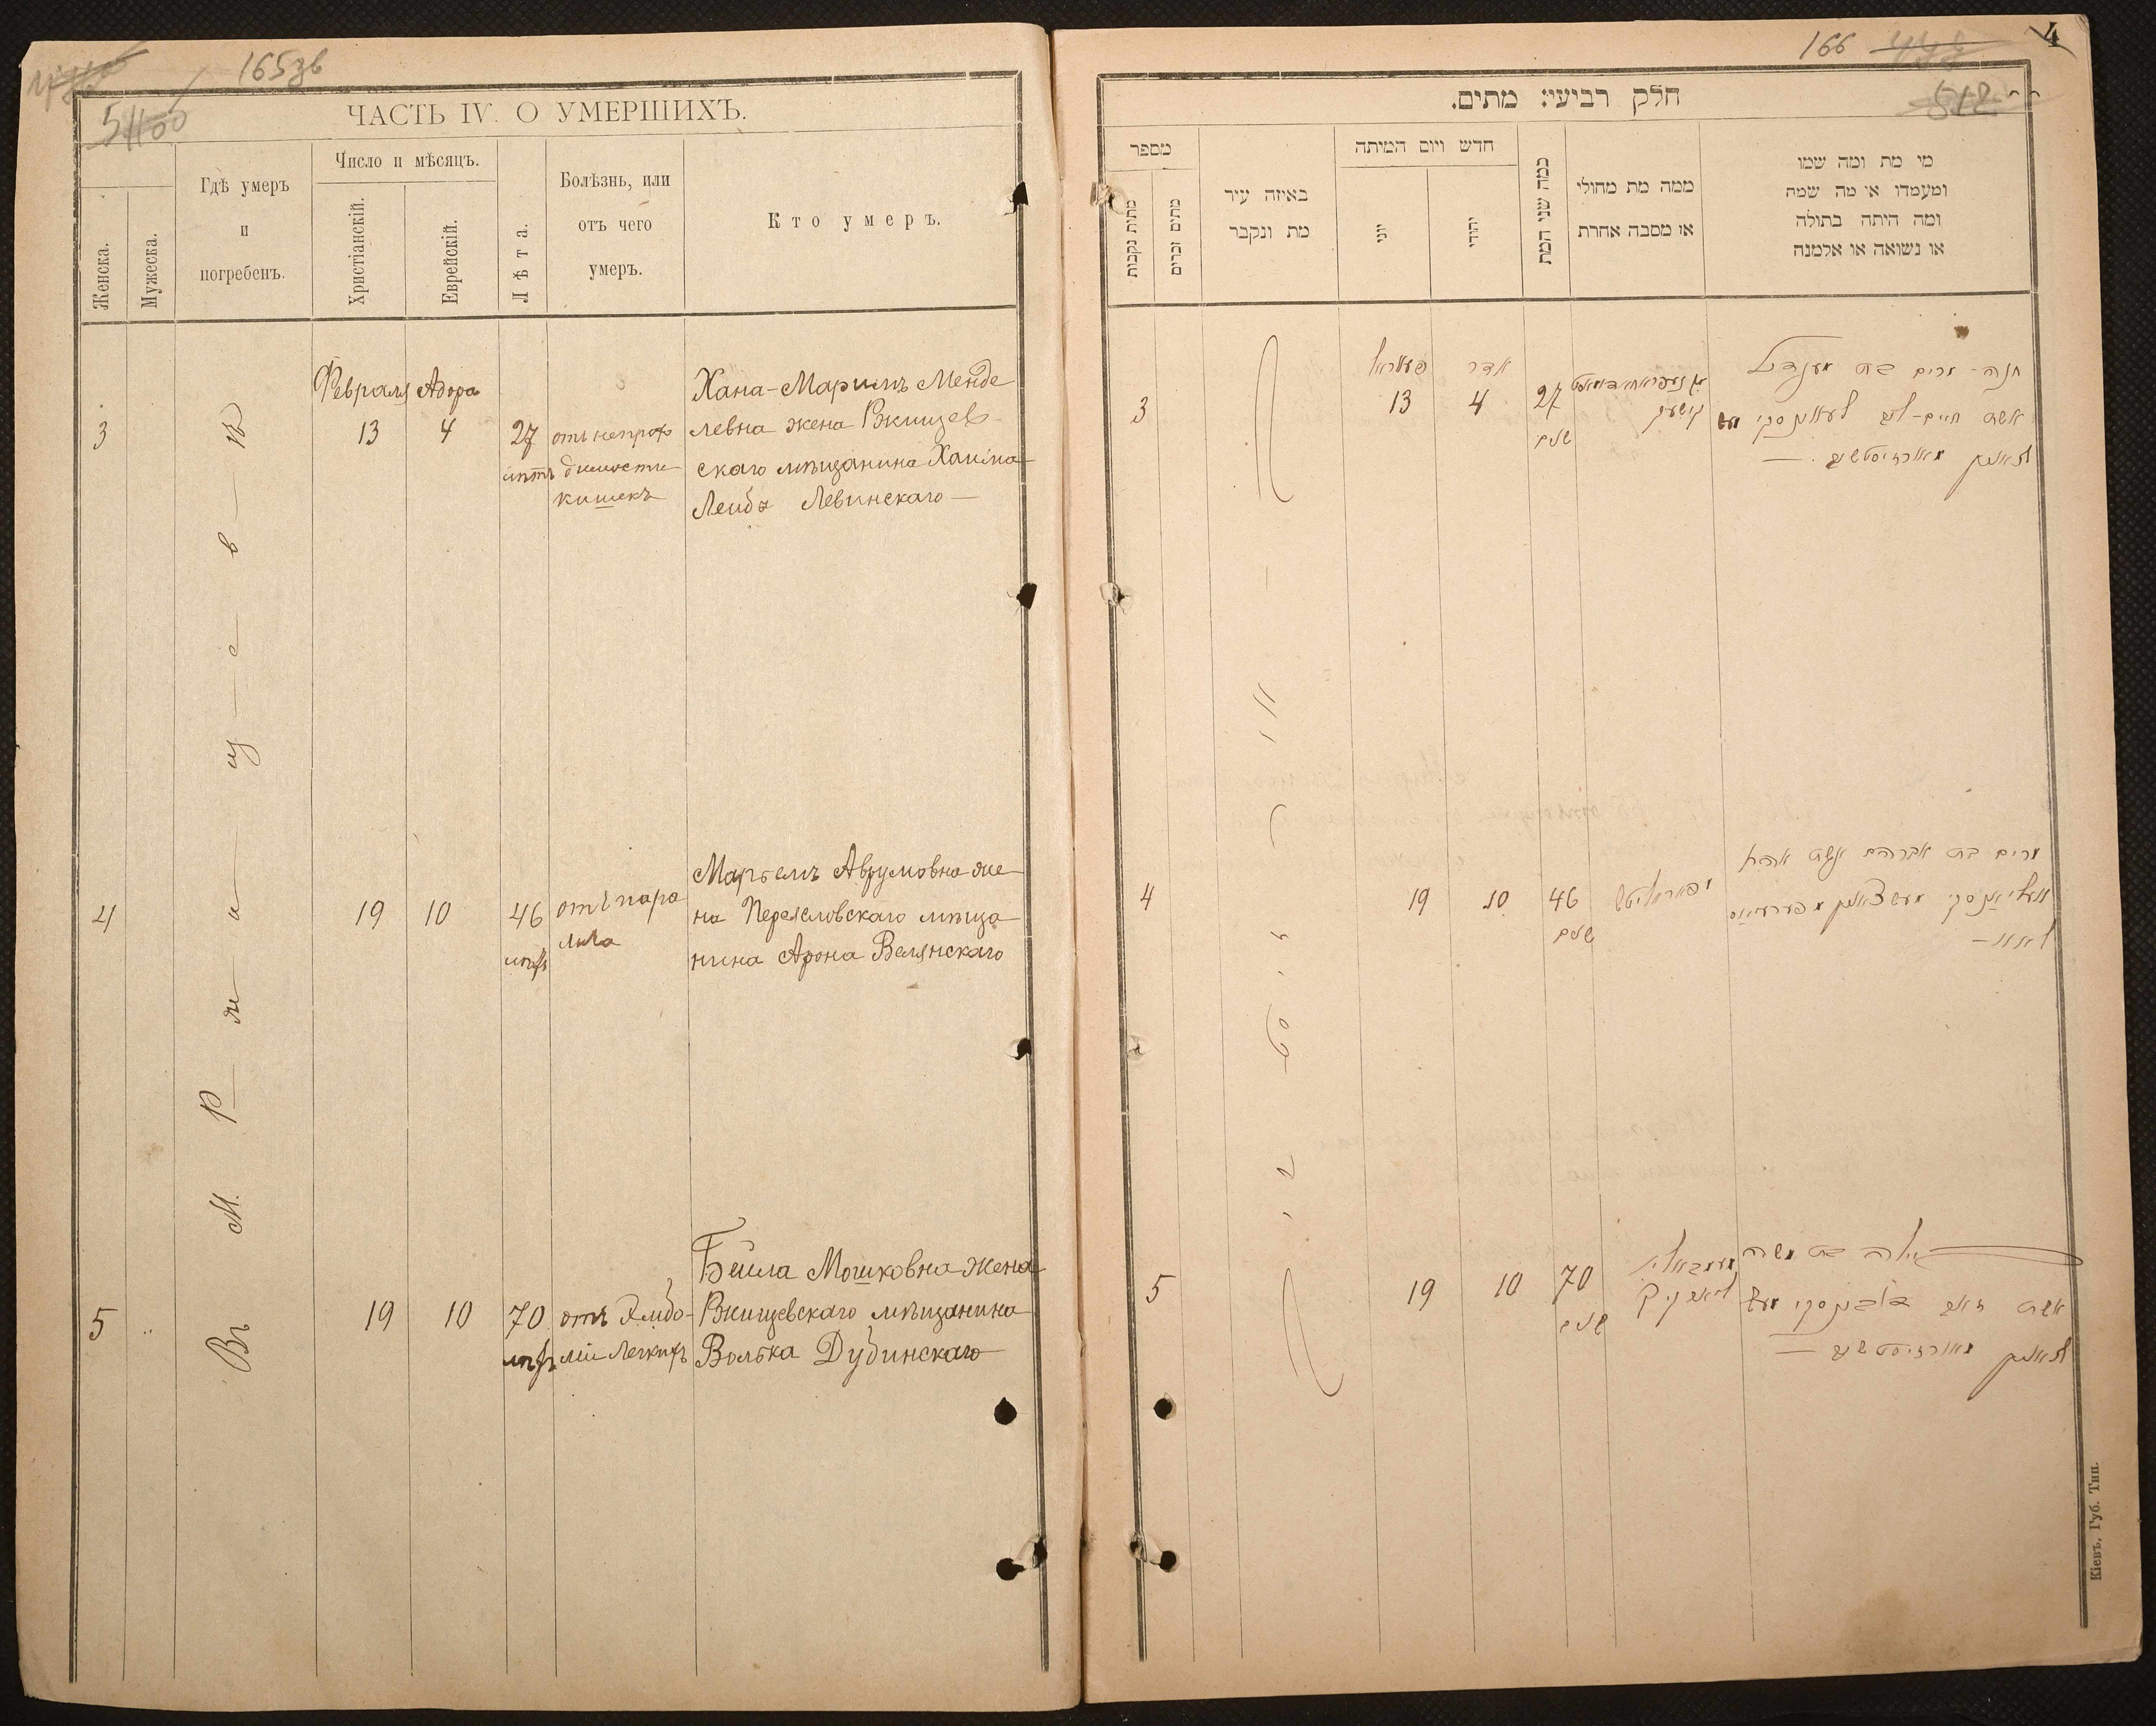 165зв
ЧАСТЬ IV. О УМЕРШИХЪ.
Женска.
Мужеска.
Гдѣ умеръ
и
погребенъ.
Число и мѣсяцъ.
Христіанскій.
Еврейскій.
Лѣта.
Болѣзнь, или
отъ чего
умеръ.
Кто умеръ.
Въ м. Ржищевѣ
Февраля Адора
3
13 4 27 лѣтъ
отъ непрохо
димости
кишекъ
Хана-Маріимъ Менде
левна жена Ржищев-
скаго мѣщанина Хаима
Лейба Левинскаго —
4
19 10 46 лѣтъ
отъ пара
лича
Маріемъ Аврумовна же
на Переяславскаго мѣща
нина Арона Велянскаго
5
19 10 70 лѣтъ
отъ Эмбо-
ліи Легкихъ
Бейла Мошковна жена
Ржищевскаго мѣщанина
Волька Дубинскаго
166
4
512
חלק רביעי: מתים.
מספר
מתות נקבות
מתים זכרים
באיזה עיר
מת ונקבר
חדש ויום המיתה
יוני
יהודי
כמה שני המת
ממה מת מחולי
או מסבה אחרת
מי מת ומה שמו
ומעמדו או מה שמה
ומה היתה בתולה
או נשואה או אלמנה
3
13
אדר
4
27
חנה-מרים בת מענדיל
אשת חיים-ליב
4
19
10
46
מרים בת אברהם אשת אהרן
5
19
10
70
ביילה בת משה
אשת זאב
Кіевъ, Губ. Тип.